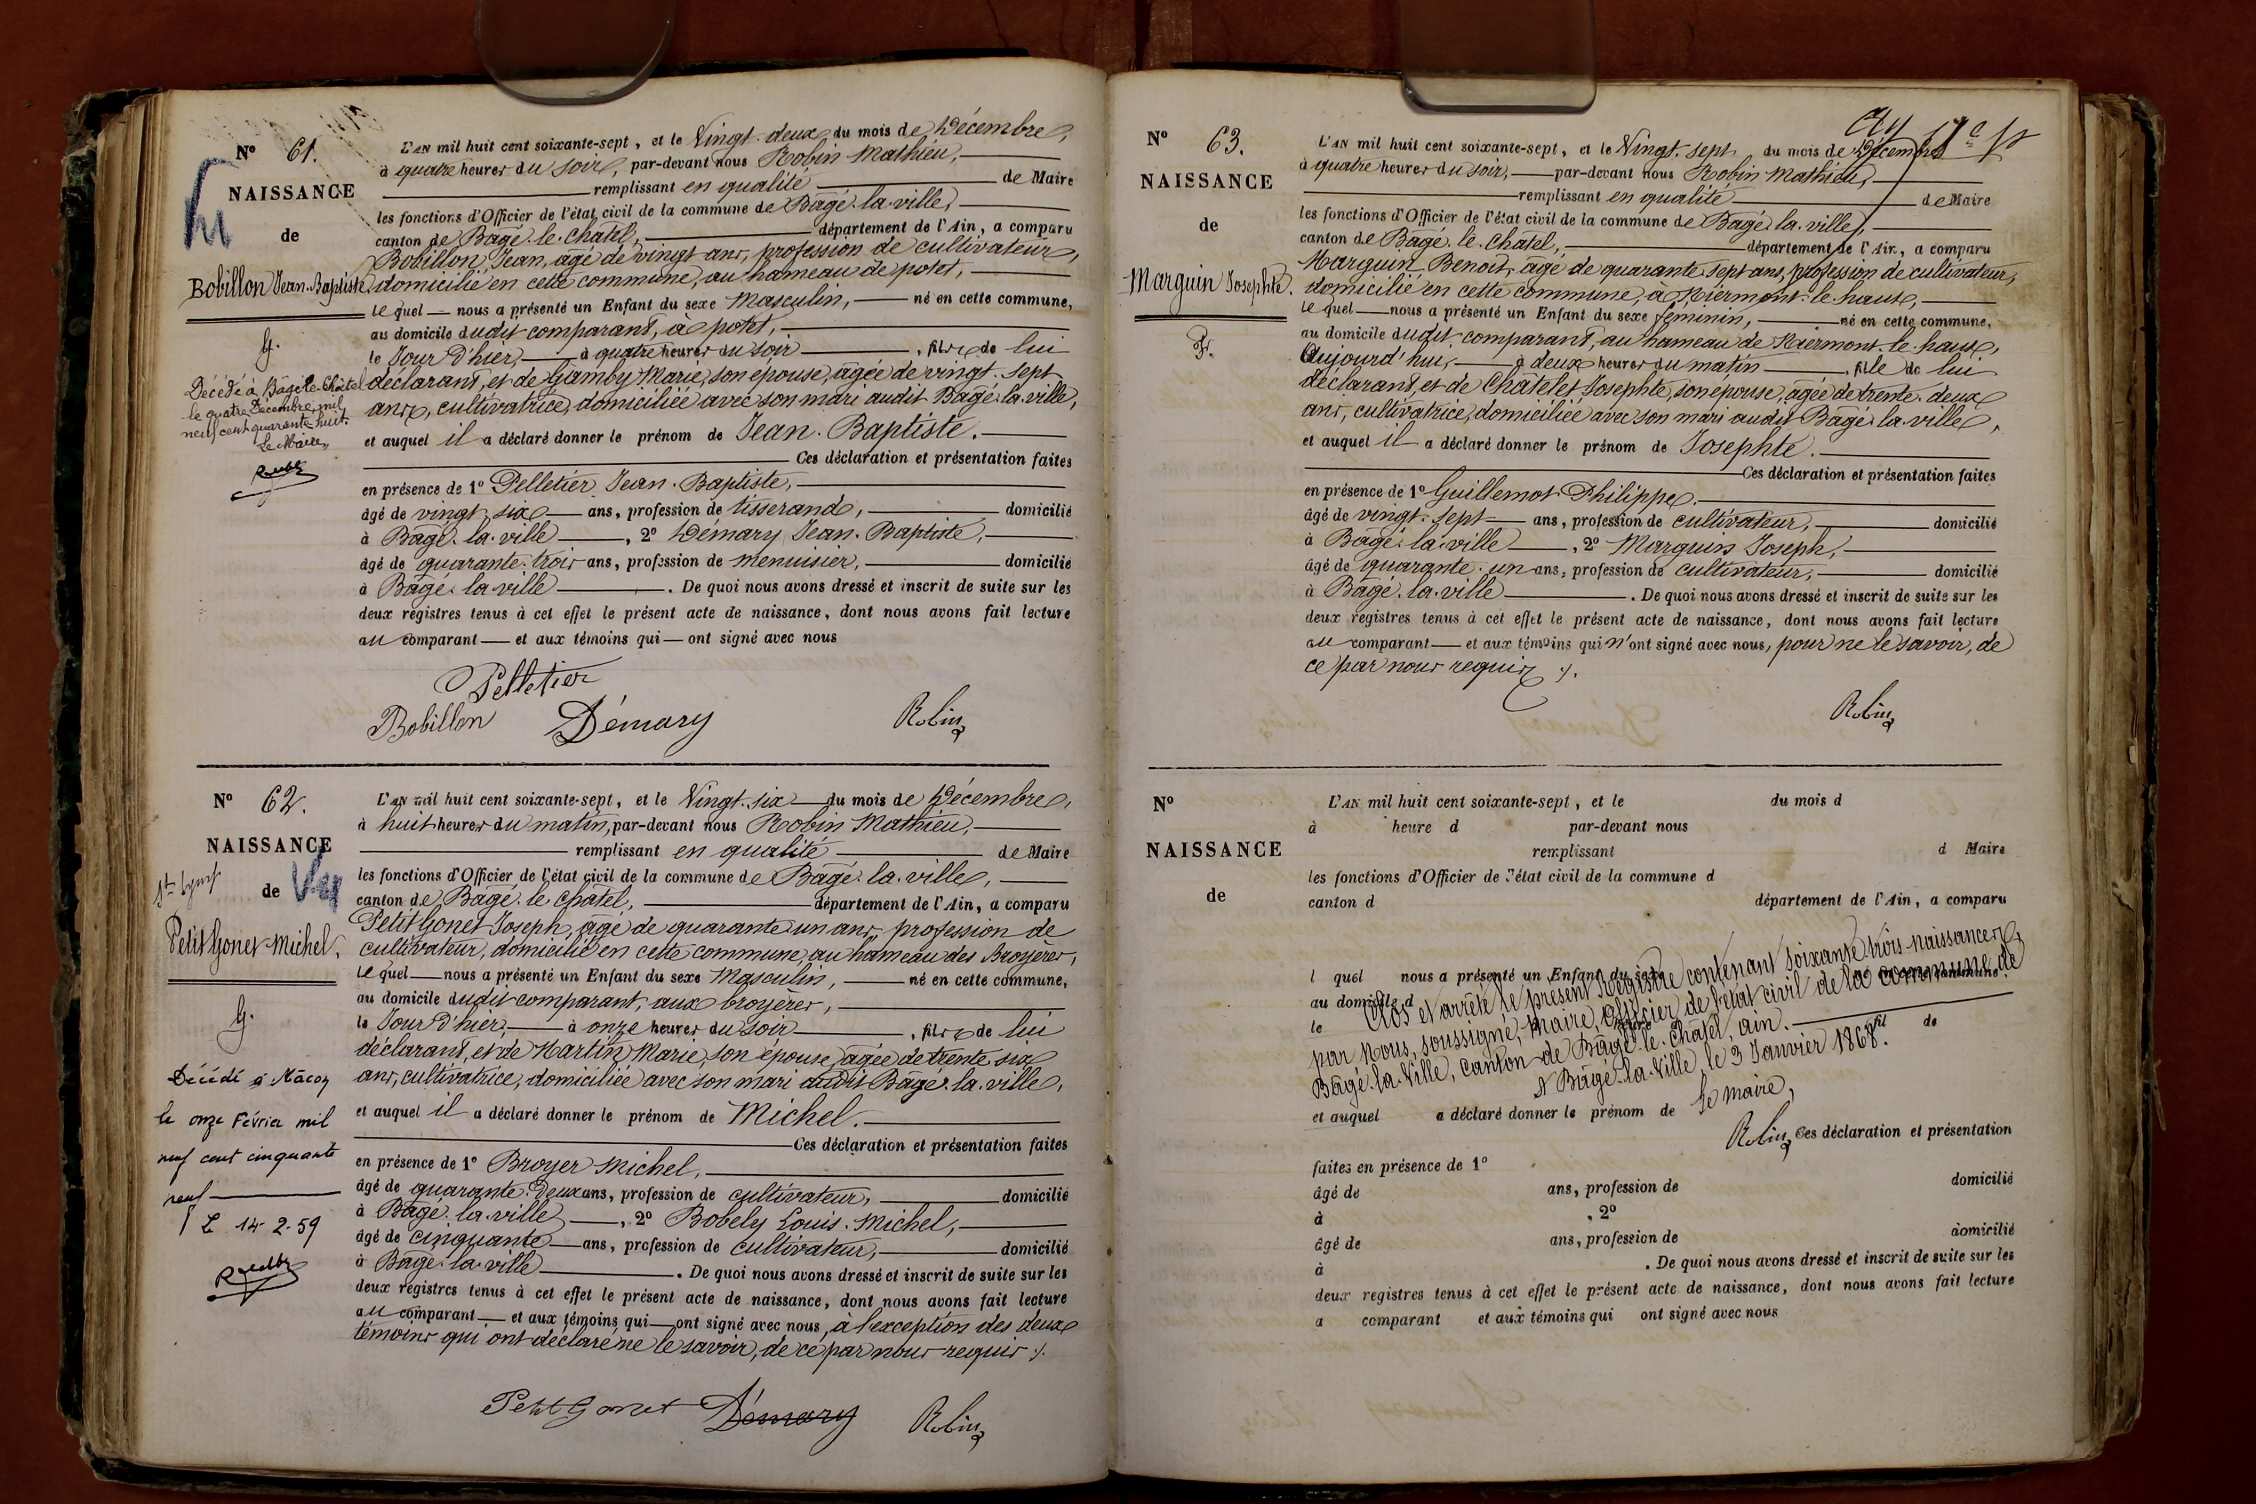 Nº 61.
NAISSANCE
de
Bobillon Jean-Baptiste
G.
Décédé à Bâgé-le-Châtel
le quatre Décembre mil
neuf cent quarante-huit.
Le Maire,
L'AN mil huit cent soixante-sept, et le Vingt-deux du mois de Décembre,
à quatre heures du soir, par-devant nous Robin Mathieu,
remplissant en qualité de Maire
les fonctions d'Officier de l'état civil de la commune de Bâgé-la-ville,
canton de Bâgé-le-Châtel, département de l'Ain, a comparu
Bobillon Jean, âgé de vingt ans, profession de cultivateur,
domicilié en cette commune, au hameau de potet,
lequel nous a présenté un Enfant du sexe Masculin, né en cette commune,
au domicile dudit comparant, à potet,
le Jour d'hier, à quatre heures du soir, fils de lui
déclarant, et de Gamby Marie, son épouse, âgée de vingt-sept
ans, cultivatrice, domiciliée avec son mari audit Bâgé-la-ville,
et auquel il a déclaré donner le prénom de Jean-Baptiste.
Ces déclaration et présentation faites
en présence de 1º Pelletier Jean-Baptiste,
âgé de vingt-six ans, profession de tisserand, domicilié
à Bâgé-la-ville, 2º Démary Jean-Baptiste,
âgé de quarante-trois ans, profession de menuisier, domicilié
à Bâgé-la-ville. De quoi nous avons dressé et inscrit de suite sur les
deux registres tenus à cet effet le présent acte de naissance, dont nous avons fait lecture
au comparant et aux témoins qui ont signé avec nous
Pelletier
Bobillon Démary Robin
Nº 62.
NAISSANCE
de
Petit Gonet Michel.
G.
Décédé à Mâcon
le onze Février mil
neuf cent cinquante
neuf
L 14-2-59
L'AN mil huit cent soixante-sept, et le Vingt-six du mois de Décembre,
à huit heures du matin, par-devant nous Robin Mathieu,
remplissant en qualité de Maire
les fonctions d'Officier de l'état civil de la commune de Bâgé-la-ville,
canton de Bâgé-le-Châtel, département de l'Ain, a comparu
Petit Gonet Joseph, âgé de quarante un ans, profession de
cultivateur, domicilié en cette commune, au hameau des Broyères,
lequel nous a présenté un Enfant du sexe Masculin, né en cette commune,
au domicile dudit comparant, aux broyères,
le Jour d'hier, à onze heures du soir, fils de lui
déclarant, et de Martin Marie, son épouse, âgée de trente-six
ans, cultivatrice, domiciliée avec son mari audit Bâgé-la-ville,
et auquel il a déclaré donner le prénom de Michel.
Ces déclaration et présentation faites
en présence de 1º Broyer Michel,
âgé de quarante-deux ans, profession de cultivateur, domicilié
à Bâgé-la-ville, 2º Bobely Louis-Michel,
âgé de cinquante ans, profession de cultivateur, domicilié
à Bâgé-la-ville. De quoi nous avons dressé et inscrit de suite sur les
deux registres tenus à cet effet le présent acte de naissance, dont nous avons fait lecture
au comparant et aux témoins qui ont signé avec nous, à l'exception des deux
témoins qui ont déclaré ne le savoir, de ce par nous requis ./.
Petit Gonet Démary Robin
Nº 63.
NAISSANCE
de
Marguin Josephte.
F.
L'AN mil huit cent soixante-sept, et le Vingt-sept du mois de Décembre
à quatre heures du soir, par-devant nous Robin Mathieu,
remplissant en qualité de Maire
les fonctions d'Officier de l'état civil de la commune de Bâgé-la-ville,
canton de Bâgé-le-Châtel, département de l'Ain, a comparu
Marguin Benoit, âgé de quarante-sept ans, profession de cultivateur,
domicilié en cette commune, à Miermont-le-haut,
lequel nous a présenté un Enfant du sexe féminin, né en cette commune,
au domicile dudit comparant, au hameau de Miermont-le-haut,
Aujourd'hui, à deux heures du matin, fille de lui
déclarant, et de Châtelet Josephte, son épouse, âgée de trente-deux
ans, cultivatrice, domiciliée avec son mari audit Bâgé-la-ville,
et auquel il a déclaré donner le prénom de Josephte.
Ces déclaration et présentation faites
en présence de 1º Guillemot Philippe,
âgé de vingt-sept ans, profession de cultivateur, domicilié
à Bâgé-la-ville, 2º Marguin Joseph,
âgé de quarante-un ans, profession de cultivateur, domicilié
à Bâgé-la-ville. De quoi nous avons dressé et inscrit de suite sur les
deux registres tenus à cet effet le présent acte de naissance, dont nous avons fait lecture
au comparant et aux témoins qui n'ont signé avec nous, pour ne le savoir, de
ce par nous requis ./.
Robin
Nº
NAISSANCE
de
L'AN mil huit cent soixante-sept, et le du mois d
à heure d par-devant nous
remplissant d Maire
les fonctions d'Officier de l'état civil de la commune d
canton d département de l'Ain, a comparu
l quel nous a présenté un Enfant du sexe né en cette commune,
au domicile d
le heure fil de
Clos et arrêté le présent Registre contenant soixante trois naissances,
par Nous, soussigné, Maire, officier de l'état civil de la commune de
Bâgé-la-Ville, canton de Bâgé-le-Châtel, ain.
A Bâgé-la-Ville le 3 Janvier 1868.
Le maire,
Robin
et auquel a déclaré donner le prénom de
Ces déclaration et présentation
faites en présence de 1º
âgé de ans, profession de domicilié
à , 2º
âgé de ans, profession de domicilié
à . De quoi nous avons dressé et inscrit de suite sur les
deux registres tenus à cet effet le présent acte de naissance, dont nous avons fait lecture
a comparant et aux témoins qui ont signé avec nous